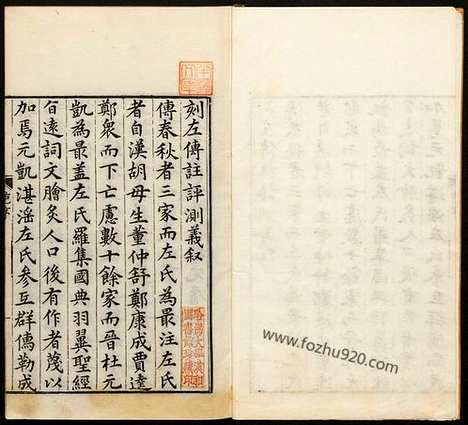 刻左傳註評測義叙
傳春秋者三家而左氏為最注左氏
者自漢胡母生董仲舒鄭康成賈逵
鄭衆而下亡慮數十餘家而晉杜元
凱為最盖左氏羅集國典羽翼聖經
旨遠詞文膾炙人口後有作者蔑以
加焉元凱湛滛左氏參互群儒勒成
www.fozhu920.com